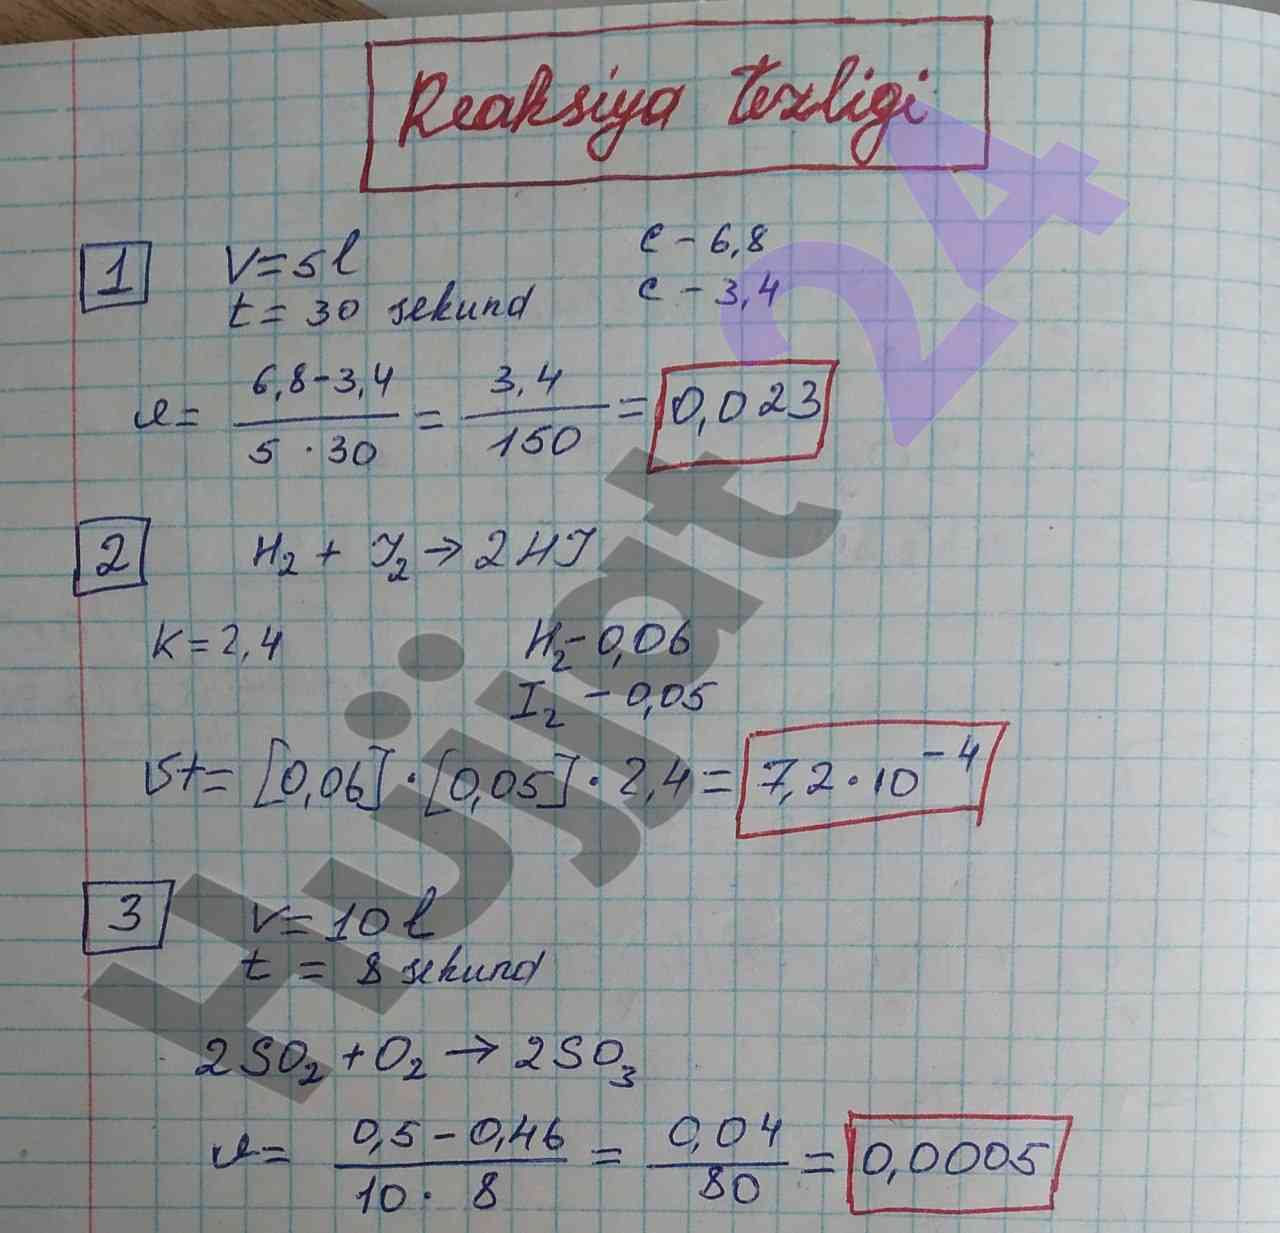 Reaksiya tezligi
1 V=5l c - 6,8
t = 30 sekund c - 3,4
v = 6,8-3,4 / 5 · 30 = 3,4 / 150 = 0,023
2 H2 + J2 → 2HJ
K = 2,4 H2 - 0,06
I2 - 0,05
vt = [0,06] · [0,05] · 2,4 = 7,2 · 10^-4
3 V = 10l
t = 8 sekund
2SO2 + O2 → 2SO3
v = 0,5 - 0,46 / 10 · 8 = 0,04 / 80 = 0,0005
Hujjat 24